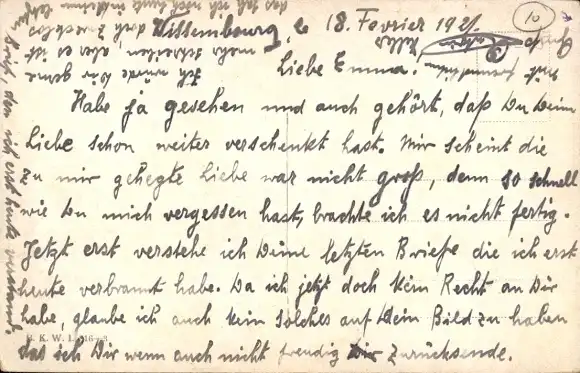 Wissembourg, le 18. Fevrier 1921
Liebe Emma.
Habe ja gesehen und auch gehört, daß Du Deine
Liebe schon weiter verschenkt hast. Mir scheint die
zu mir gehegte Liebe war nicht groß, denn so schnell
wie Du mich vergessen hast, brachte ich es nicht fertig.
Jetzt erst verstehe ich Deine letzten Briefe die ich erst
heute verbrannt habe. Da ich jetzt doch kein Recht an Dir
habe, glaube ich auch kein Solches auf Dein Bild zu haben
das ich Dir wenn auch nicht freudig zurücksende.
Ich würde Dir gerne
mehr schreiben, aber es ist
doch zwecklos
10
K. W. L.